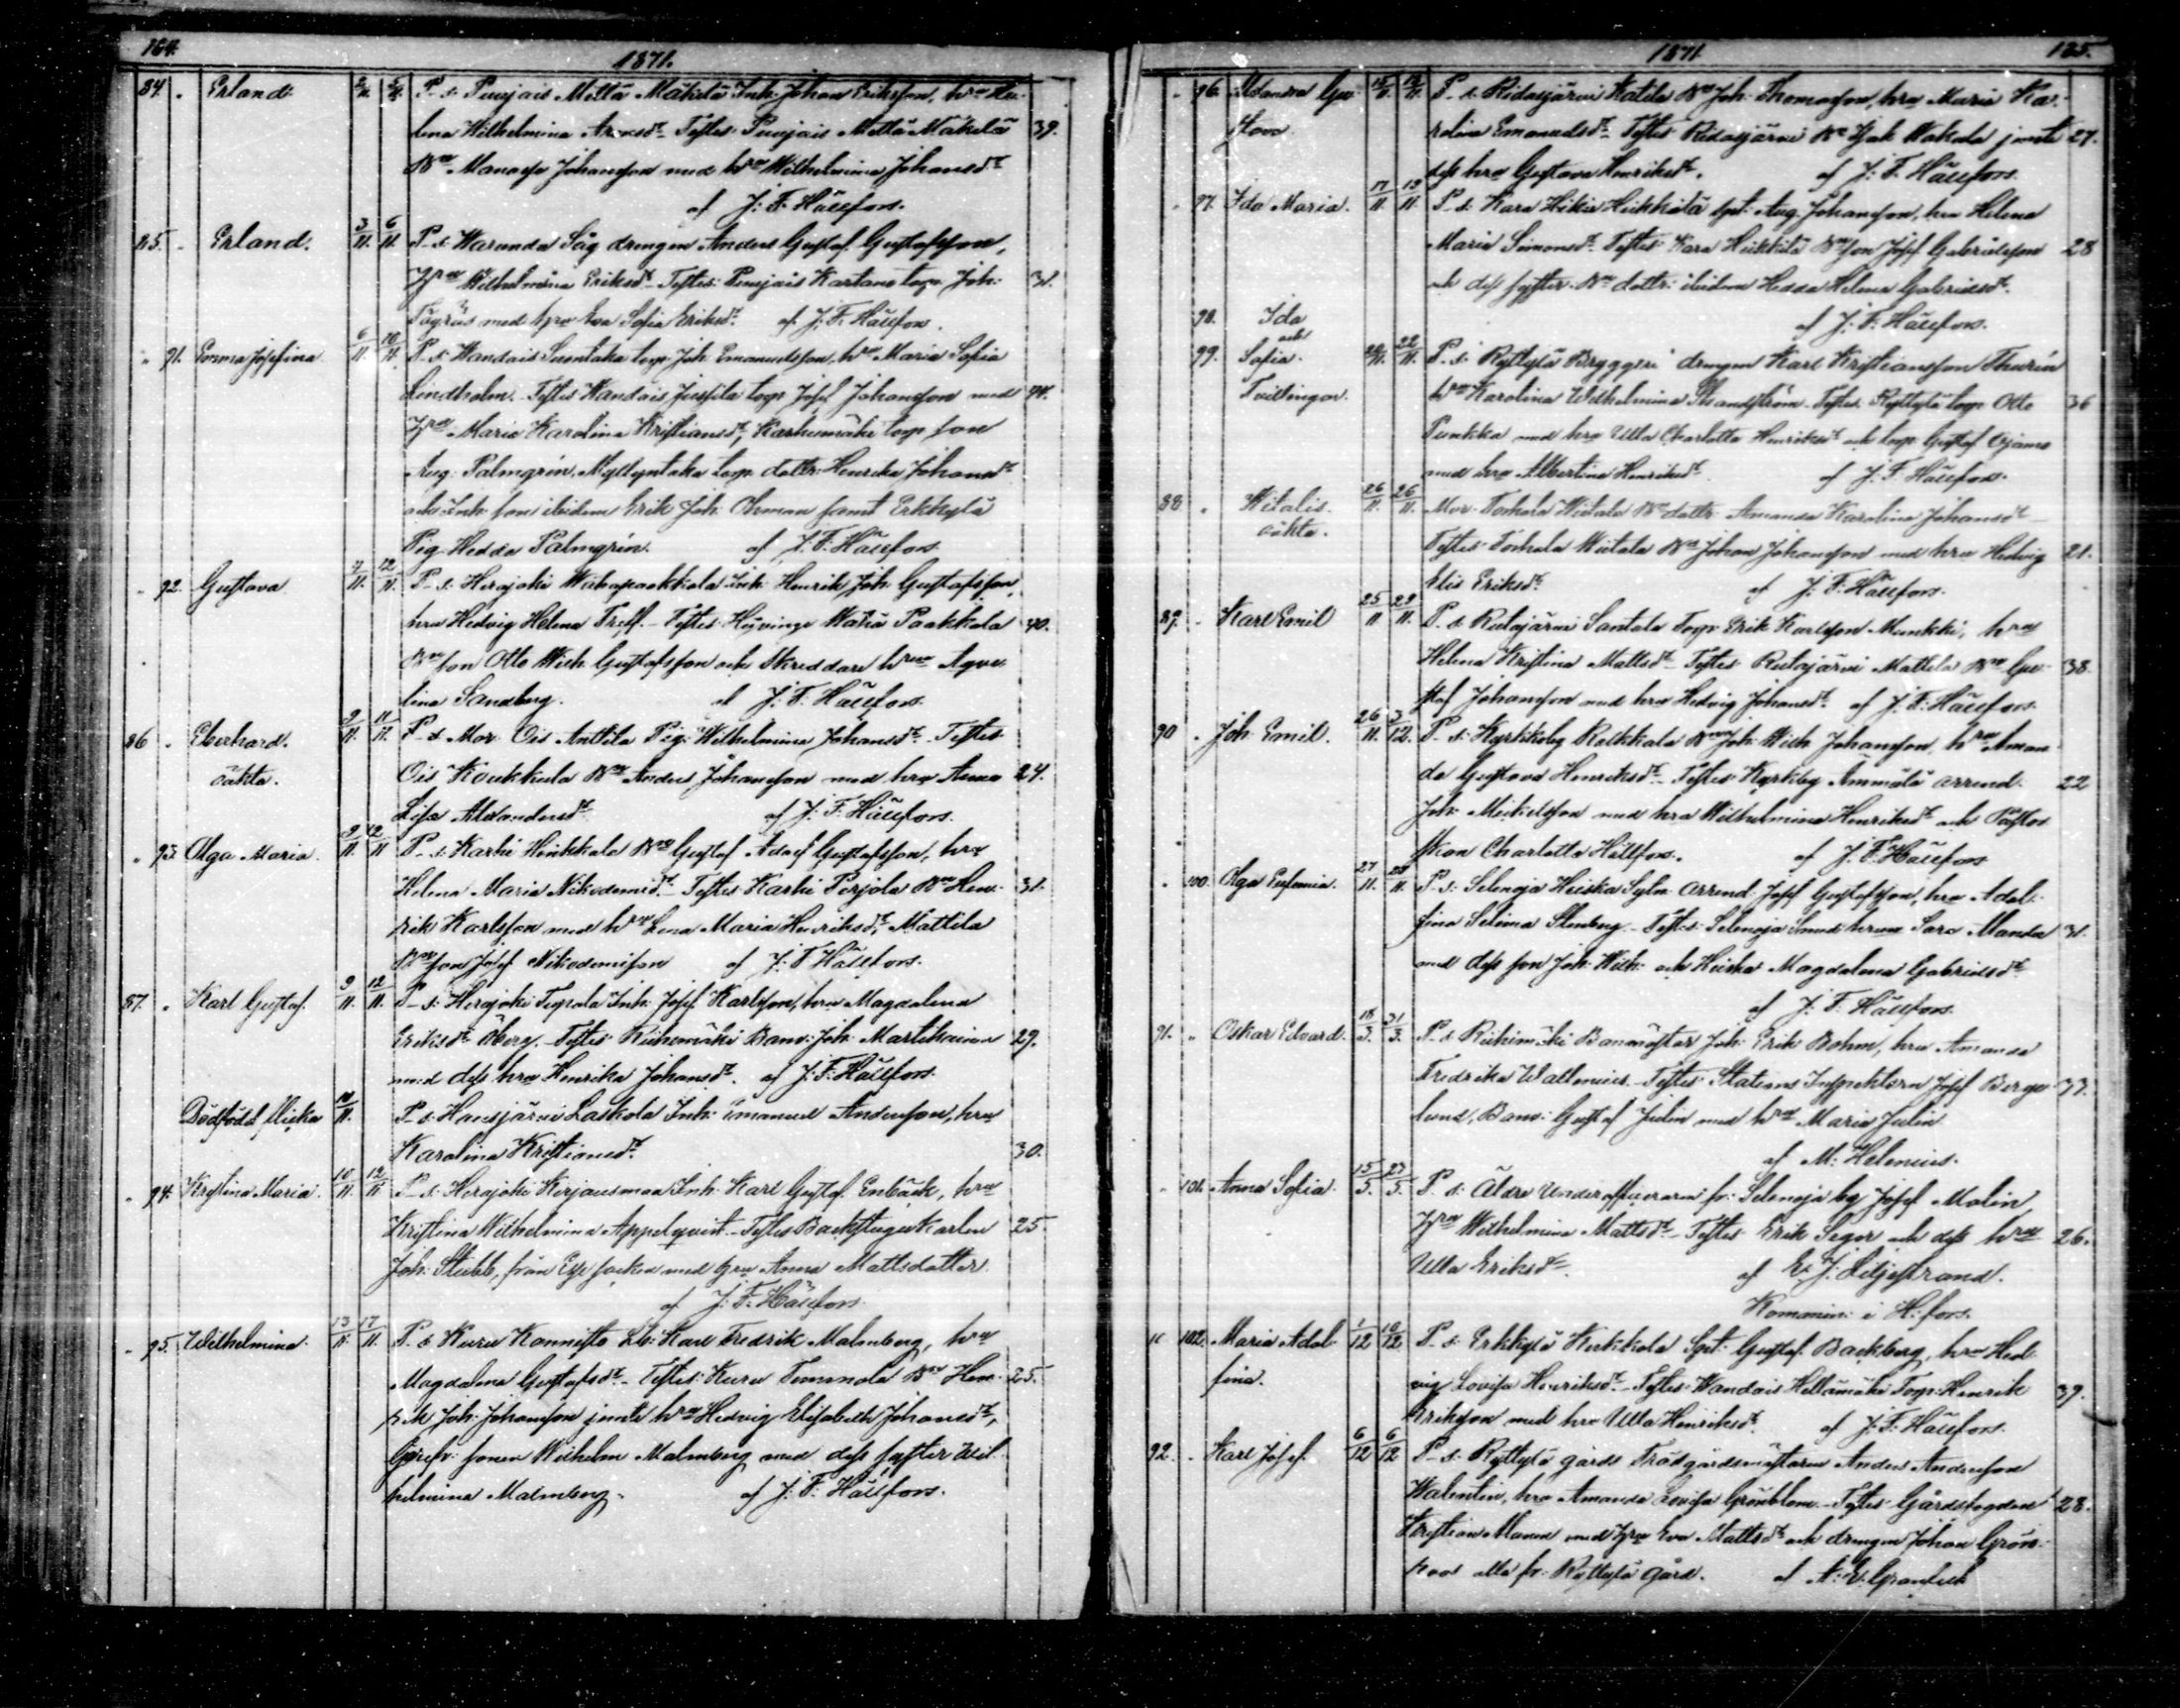 184. 1871.
84. Erland 2/11. 5/11. P. s: Puujais Mettä Mäkelä Inh. Johan Eriksson, hru He-
lina Wilhelmina Aronsdr. Testes: Puujais Mettä Mäkelä 39.
Bn Manasse Johansson med hru Wilhelmina Johansdr
af J. F. Hällfors.
85. Erland. 3/11. 6/11. P. s: Waranda Såg drengen Anders Gustaf Gustafsson,
Hru Wilhelmina Eriksdr Testes: Puujais Kartano torp. Joh: 31.
med hru Eva Sofia Eriksdr. af J. F. Hällfors.
91. Emma Josefina 6/11. 10/11. P. s: Wandais Suontaka torp. Joh. Emanuelsson, hru Maria Sofia
Lindholm. Testes Wandais Jussila torp. Josef Johansson med 44.
Hru Maria Karolina Kristiansdr, Karhumäki torp. son
Aug. Palmgrén, Myllyntaka torp. dottr. Henrika Johansdr
och Inh. son ibidem Erik Joh. Öhman samt Erkkylä
Pig. Hedda Palmgrén. af J. F. Hällfors
92. Gustava 7/11. 12/11. P. s: Herajoki Inh. Henrik Joh. Gustafsson,
hru Hedvig Helena Testes: Hyvinge Paakkola 40.
Bn son Otto Wilh. Gustafsson och Skreddare hru
lina Sandberg. af J. F. Hällfors.
86. Eberhard. 9/11. 11/11. P. s: Mor Ois Anttila Pig. Wilhelmina Johansdr. Testes
oäkta. Ois Koukkula Bn Anders Johansson med hru Anna 24.
Lisa Alexandersdr. af J. F. Hällfors.
93. Olga Maria. 9/11. 12/11 P. s: Karhi Heikkala Bn Gustaf Adolf Gustafsson, hru
Helena Maria Nikodemidr. Testes Karhi Perjola Bn Hen- 31.
rik Karlsson med hru Lena Maria Henriksdr, Mattila
Bn son Josef Nikodemisson af J. F. Hällfors.
87. Karl Gustaf. 9/11. 12/11. P. s: Herajoki Inh. Josef Karlsson, hru Magdalena
Eriksdr Öberg. Testes Riihimäki Banv. Joh. Martikainen 29.
med dess hru Henrika Johansdr. af J. F. Hällfors.
Dödfödd flicka 10/11. P. s: Hausjärvi Laskola Inh. Emanuel Andersson, hru
Karolina Kristiansdr. 30.
94. Kristina Maria. 10/11. 12/11 P. s: Herajoki Kirjausmaa Inh. Karl Gustaf Enbäck, hru
Kristina Wilhelmina Appelqvist. Testes Backstugukarlen 25.
Joh. Stubb, från socken med hru Anna Mattsdotter.
af J. F. Hällfors.
95. Wilhelmina. 13/11. 17/11. P. s: Kuru Kannisto Karl Fredrik Malmberg, hru
Magdalena Gustafsdr. Testes: Kuru Tummola Bn Hen- 25.
rik Joh. Johansson jemte hru Hedvig Elisabeth Johansdr,
sonen Wilhelm Malmberg med dess syster Wil-
helmina Malmberg. af J. F. Hällfors.
1871 185.
96. Amanda Gu- 15/11. 19/11. P. s: Ridasjärvi Katila Bn Joh. Thomasson, hru Maria Ka-
stava. rolina Emanuelsdr. Testes Ridasjärvi Bn Isak Wakala jemte 27.
dess hru Gustava Henriksdr. af J. F. Hällfors.
97. Ida Maria. 17/11. 19/11. P. s: Kara Hikiä Heikkilä spt. Aug. Johansson, hru Helena
Maria Simonsdr. Testes: Kara Heikkilä Bn son Josef Gabrielsson 28
och dess syster Bn dottr. ibidem Hedda Helena Gabrielsdr.
98. Ida af J. F. Hällfors.
och
99. Sofia. 20/11. 22/11. P. s: Ryttylä Bryggeri drengen Karl Kristiansson Thurén
Tvillingar. hru Karolina Wilhelmina Strandström. Testes Ryttylä torp. Otto 36
Punkka med hru Ulla Charlotta Henriksdr och torp. Gustaf Ojanen
med hru Albertina Henriksdr. af J. F. Hällfors.
88. Witalis. 26/11. 26/11. Mor: Torhola Wietala Bn dottr. Amanda Karolina Johansdr
oäkta. Testes: Torhola Wietala Bn Johan Johansson med hru Hedvig 21.
Elis Eriksdr. af J. F. Hällfors.
89. Karl Emil 25/11 29/11. P. s: Rutajärvi Santala Torp. Erik Karlsson Munkki, hru
Helena Kristina Mattsdr. Testes Rutajärvi Mattila Bn Gu- 38.
staf Johansson med hru Hedvig Johansdr. af J. F. Hällfors.
90. Joh. Emil. 26/11. 3/12. P. s: Kyrkoby Bn Joh. Wilh. Johansson, hru Aman-
da Gustava Henriksdr. Testes: Kyrkoby Ämmälä arrend. 22
Joh. Mickelsson med hru Wilhelmina Henriksdr och Pastor
skan Charlotta Hällfors. af J. F. Hällfors
100. Olga Eufemia. 27/11. 28/11. P. s: Selenoja Heiska Sylm. arrend. Josef Gustafsson, hru Adol-
fina Selima Stenberg. Testes: Selenoja Smeds hru Sara Manda 31.
med dess son Joh. Wilh. och Heiska Magdalena Gabrielsdr.
af J. F. Hällfors.
91. Oskar Edvard. 18/3. 31/3. P. s: Riihimäki Banmästar Joh. Erik Bohm, hru Amanda
Fredrika Wallenius. Testes: Stations Inspektorn Josef Berg- 33.
lund, Banv. Gustaf Julin med hru Maria Julin
af M. Helenius.
101. Anna Sofia. 15/5. 23/5. P. s: Äldre Underofficeraren fr. Selenoja by Josef Malin,
Hru Wilhelmina Mattsdr. Testes Erik Seger och dess hru 26.
Ulla Eriksdr. af E. J. Liljestrand.
Kommin: i H:fors.
102. Maria Adol- 1/12 10/12 P. s: Erkkylä Kerkkola Spt. Gustaf Backberg, hru Hed-
fina. vig Lovisa Henriksdr. Testes: Wandais Hellämäki Torp. Henrik 39.
Eriksson med hru Ulla Henriksdr. af J. F. Hällfors.
92. Karl Josef. 6/12 6/12 P. s: Ryttylä gårds Trädgårdsmästaren Anders Andersson
Walentin, hru Amanda Lovisa Grönblom. Testes Gårdsfogden 28.
Kristian med hru Eva Mattsdr och drengen Johan Grön-
roos alla fr. Ryttylä gård. af A. E. Granfelt